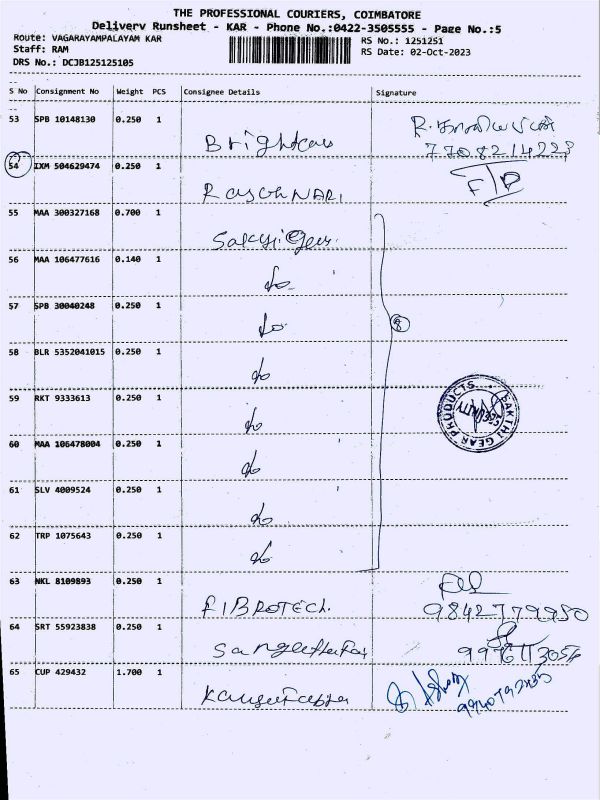 THE PROFESSIONAL COURIERS, COIMBATORE
Delivery Runsheet - KAR - Phone No.:0422-3505555 - Page No.:5
Route: VAGARAYAMPALAYAM KAR
RS No.: 1251251
Staff: RAM
RS Date: 02-Oct-2023
DRS No.: DCJB125125105
S No Consignment No Weight PCS Consignee Details Signature
53 SPB 10148130 0.250 1
7708214223
54 IXM 504629474 0.250 1
55 MAA 300327168 0.700 1
56 MAA 106477616 0.140 1 do
57 SPB 30040248 0.250 1 do
8
58 BLR 5352041015 0.250 1 do
59 RKT 9333613 0.250 1 do
SAKTHI GEAR PRODUCTS
SECURITY
60 MAA 106478004 0.250 1 do
61 SLV 4009524 0.250 1 do
62 TRP 1075643 0.250 1 do
63 NKL 8109893 0.250 1 FIBROTECH
9842779950
64 SRT 55923838 0.250 1
65 CUP 429432 1.700 1